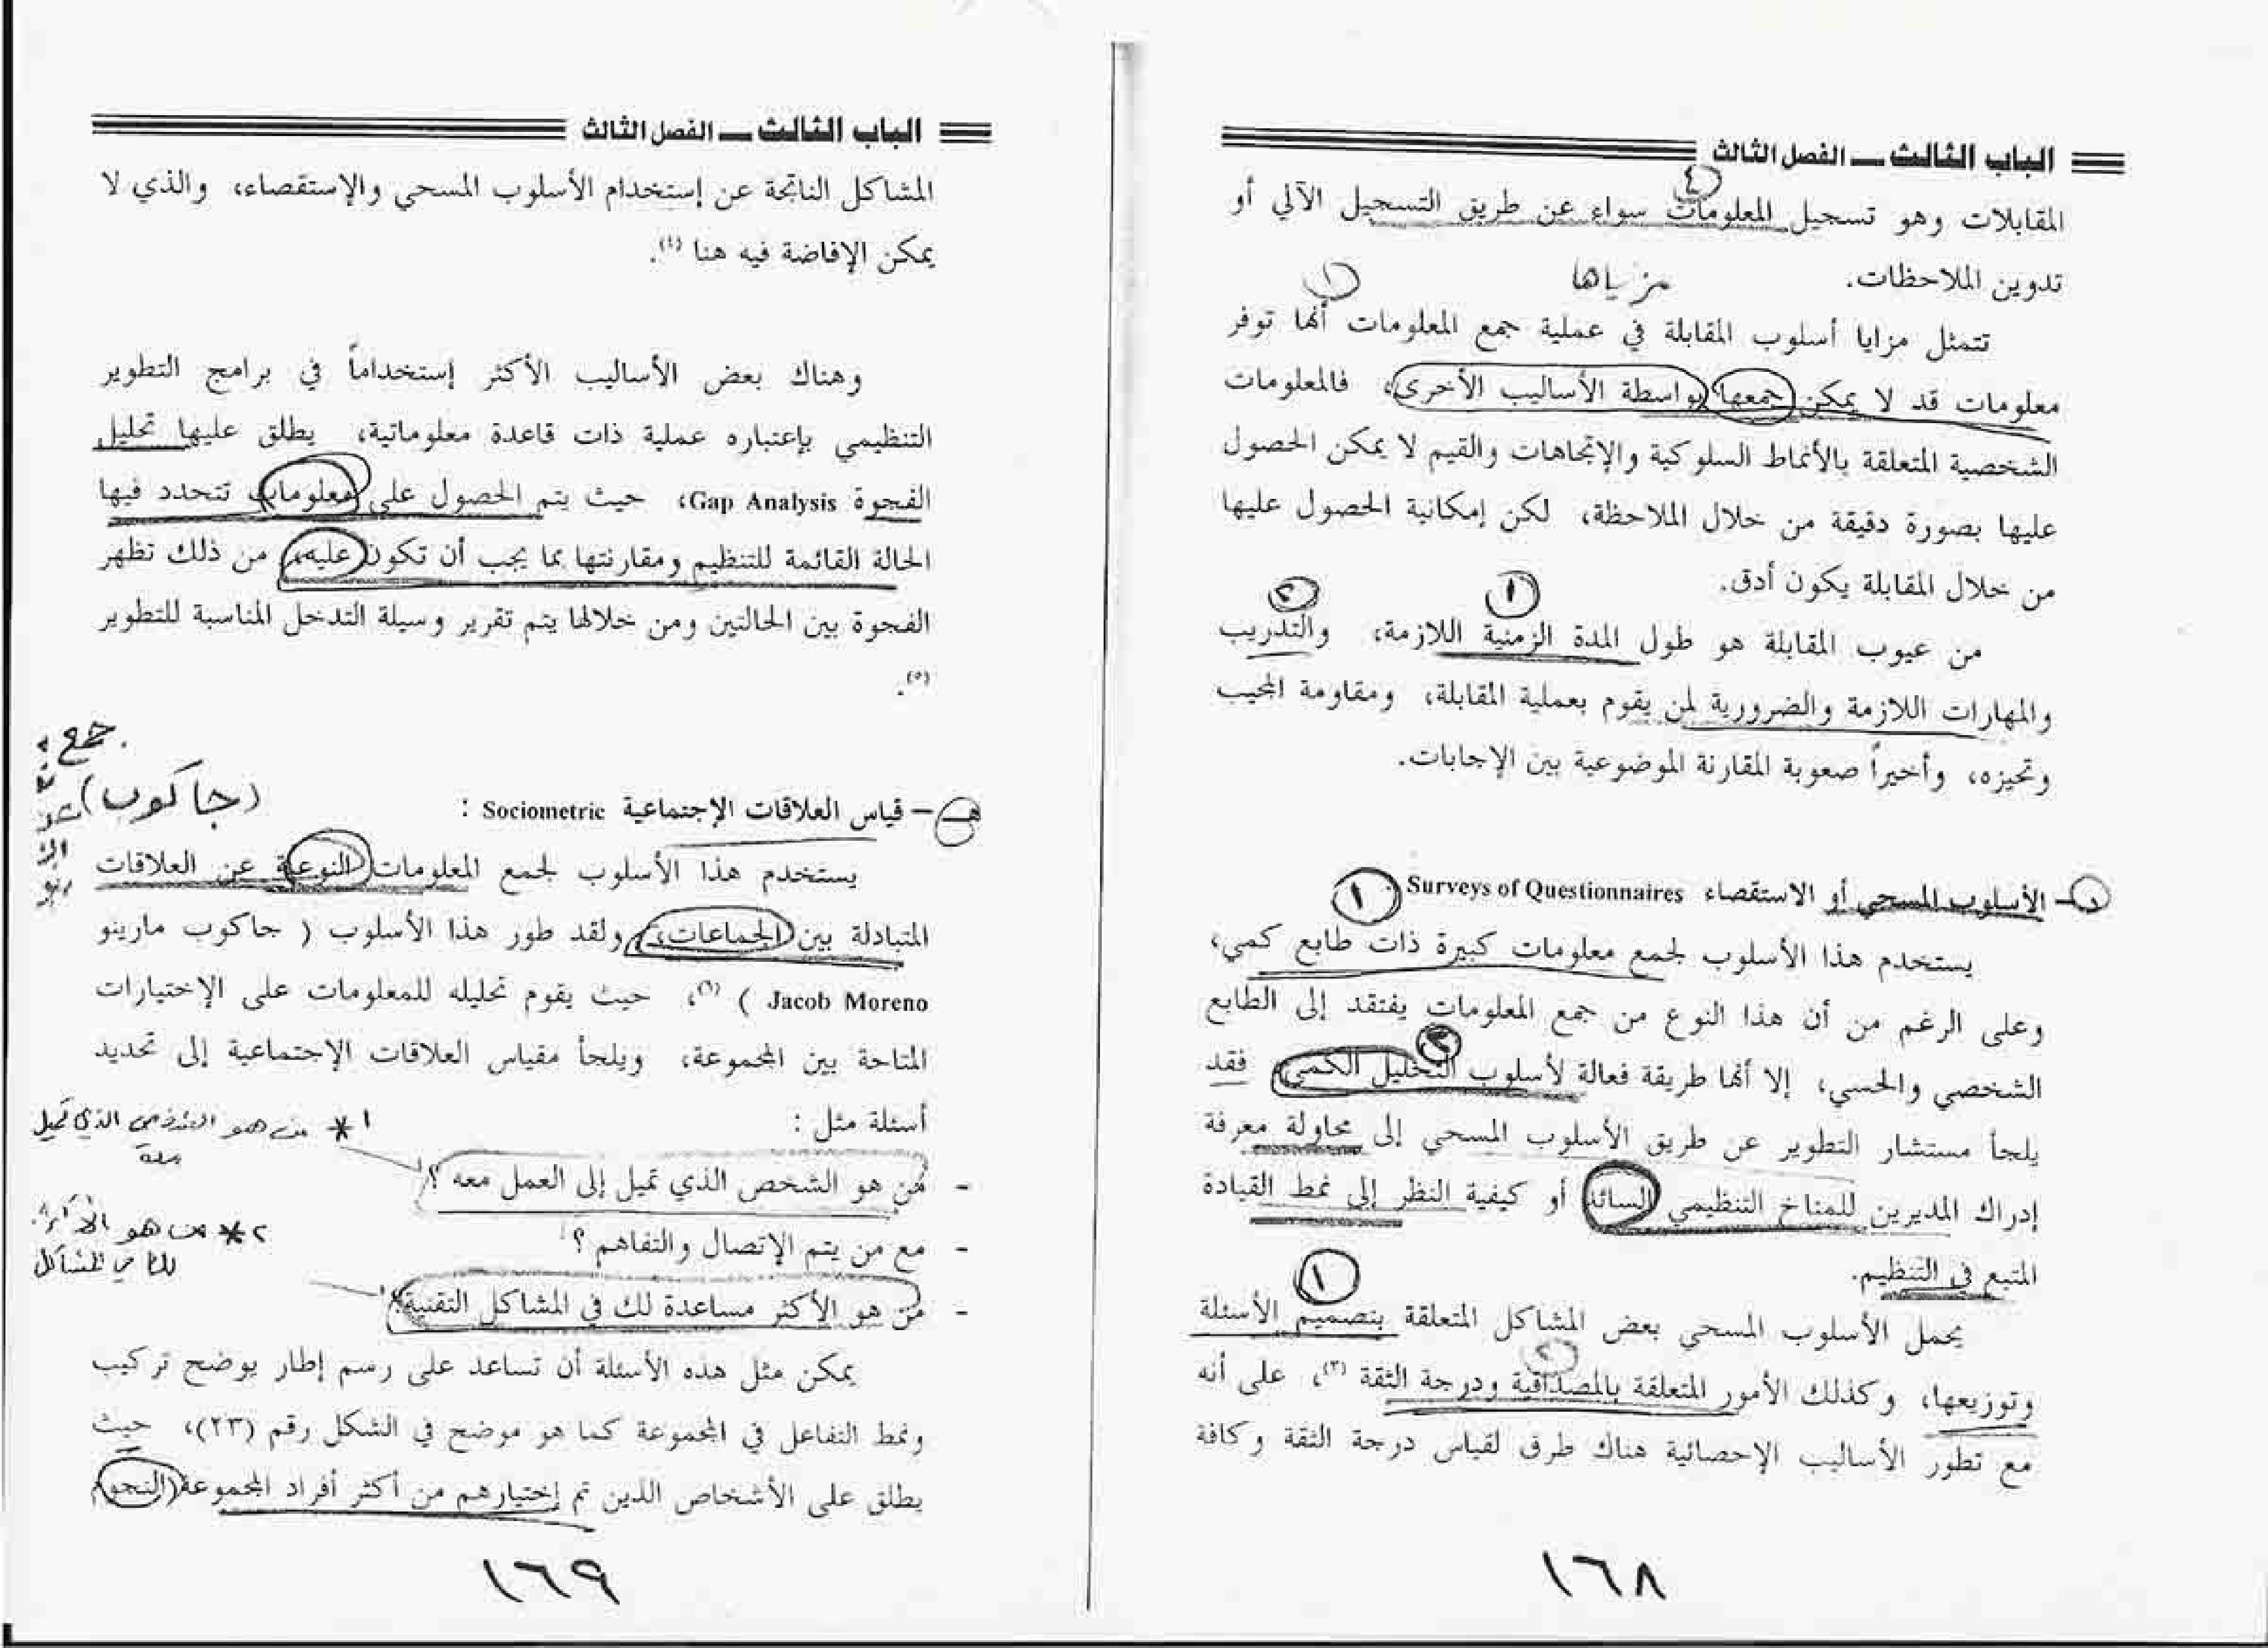 الباب الثالث ـــ الفصل الثالث
المقابلات وهو تسجيل المعلومات سواء عن طريق التسجيل الآلي أو
٤
تدوين الملاحظات.
مزياها
١
تتمثل مزايا أسلوب المقابلة في عملية جمع المعلومات أنها توفر
معلومات قد لا يمكن جمعها بواسطة الأساليب الأخرى، فالمعلومات
الشخصية المتعلقة بالأنماط السلوكية والإتجاهات والقيم لا يمكن الحصول
عليها بصورة دقيقة من خلال الملاحظة، لكن إمكانية الحصول عليها
من خلال المقابلة يكون أدق.
١
٢
من عيوب المقابلة هو طول المدة الزمنية اللازمة، والتدريب
والمهارات اللازمة والضرورية لمن يقوم بعملية المقابلة، ومقاومة المجيب
وتحيزه، وأخيراً صعوبة المقارنة الموضوعية بين الإجابات.
د – الأسلوب المسحي أو الاستقصاء Surveys of Questionnaires
١
يستخدم هذا الأسلوب لجمع معلومات كبيرة ذات طابع كمي،
وعلى الرغم من أن هذا النوع من جمع المعلومات يفتقد إلى الطابع
٢
الشخصي والحسي، إلا أنها طريقة فعالة لأسلوب التحليل الكمي، فقد
يلجأ مستشار التطوير عن طريق الأسلوب المسحي إلى محاولة معرفة
إدراك المديرين للمناخ التنظيمي السائد أو كيفية النظر إلى نمط القيادة
المتبع في التنظيم.
١
يحمل الأسلوب المسحي بعض المشاكل المتعلقة بتصميم الأسئلة
٢
وتوزيعها، وكذلك الأمور المتعلقة بالمصداقية ودرجة الثقة (٣)، على أنه
مع تطور الأساليب الإحصائية هناك طرق لقياس درجة الثقة وكافة
١٦٨
الباب الثالث ـــ الفصل الثالث
المشاكل الناتجة عن إستخدام الأسلوب المسحي والإستقصاء، والذي لا
يمكن الإفاضة فيه هنا (٤).
وهناك بعض الأساليب الأكثر إستخداماً في برامج التطوير
التنظيمي بإعتباره عملية ذات قاعدة معلوماتية، يطلق عليها تحليل
الفجوة Gap Analysis، حيث يتم الحصول على معلومات تتحدد فيها
الحالة القائمة للتنظيم ومقارنتها بما يجب أن تكون عليه، من ذلك تظهر
الفجوة بين الحالتين ومن خلالها يتم تقرير وسيلة التدخل المناسبة للتطوير
(٥).
جمع
هـ – قياس العلاقات الإجتماعية Sociometric :
(جاكوب)
يستخدم هذا الأسلوب لجمع المعلومات النوعية عن العلاقات
المتبادلة بين الجماعات، ولقد طور هذا الأسلوب ( جاكوب مارينو
Jacob Moreno ) (٦)، حيث يقوم تحليله للمعلومات على الإختيارات
المتاحة بين المجموعة، ويلجأ مقياس العلاقات الإجتماعية إلى تحديد
أسئلة مثل :
١ * من هو الشخص الذي تميل
معه
- من هو الشخص الذي تميل إلى العمل معه ؟
- مع من يتم الإتصال والتفاهم ؟
٢ * من هو الأكثر
- من هو الأكثر مساعدة لك في المشاكل التقنية؟
يمكن مثل هذه الأسئلة أن تساعد على رسم إطار يوضح تركيب
ونمط التفاعل في المجموعة كما هو موضح في الشكل رقم (٢٣)، حيث
يطلق على الأشخاص الذين تم إختيارهم من أكثر أفراد المجموعة (النجوم
١٦٩